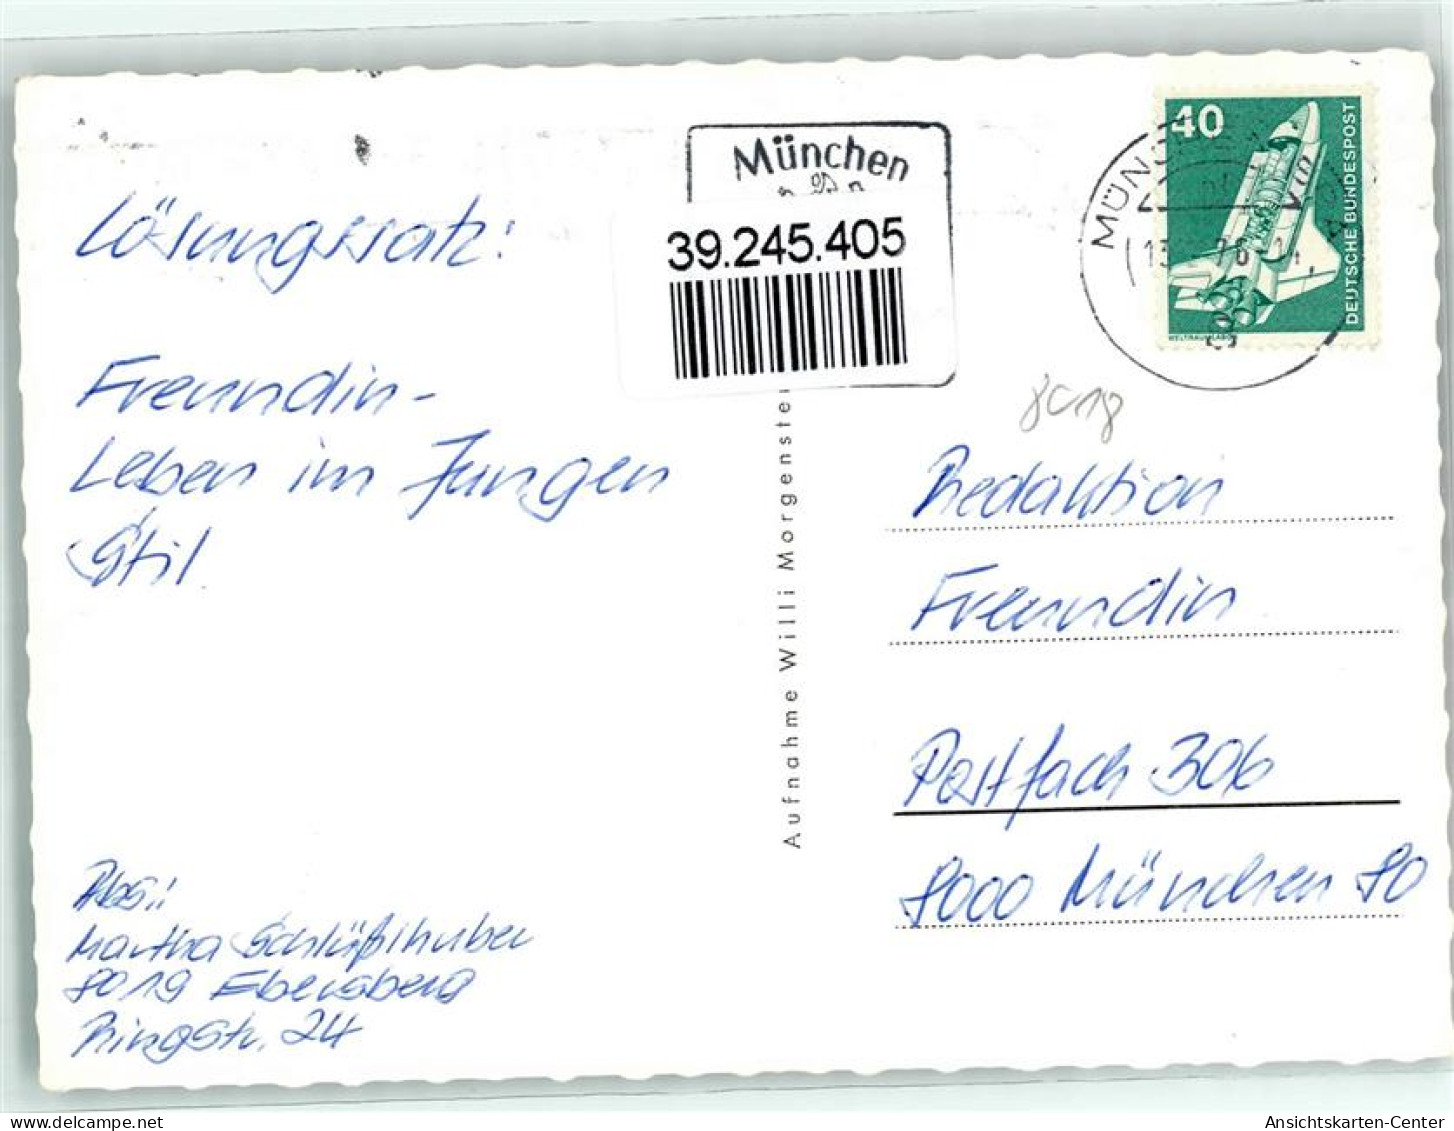 Lösungssatz:
Freundin-
Leben im Jungen
Stil
Abs.:
Martha Schlüßlhuber
8019 Ebersberg
Ringstr. 24
München
39.245.405
Aufnahme Willi Morgenster
40
DEUTSCHE BUNDESPOST
WELTRAUMLABOR
8018
Redaktion
Freundin
Postfach 306
8000 München 80
Ansichtskarten-Center